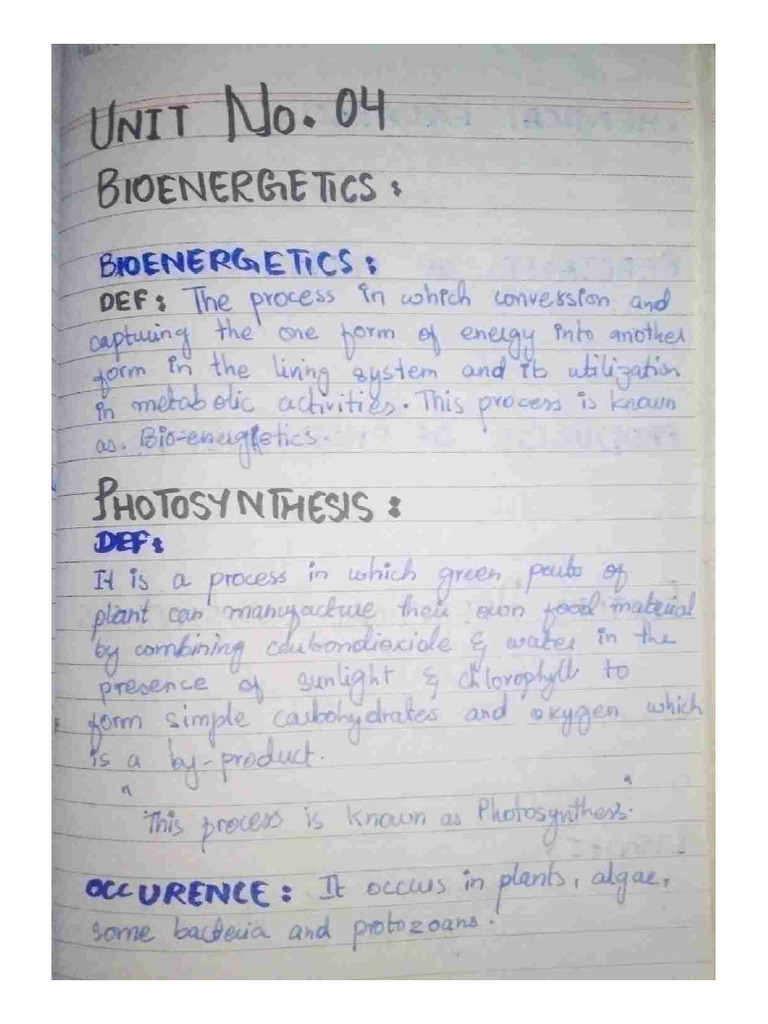 UNIT No. 04
BIOENERGETICS:
BIOENERGETICS:
DEF: The process in which conversion and
capturing the one form of energy into another
form in the living system and its utilization
in metabolic activities. This process is known
as. Bio-energetics.
PHOTOSYNTHESIS:
DEF:
It is a process in which green parts of
plant can manufacture their own food material
by combining carbondioxide & water in the
presence of sunlight & chlorophyll to
form simple carbohydrates and oxygen which
is a by-product.
"This process is known as Photosynthesis."
OCCURENCE: It occurs in plants, algae,
some bacteria and protozoans.